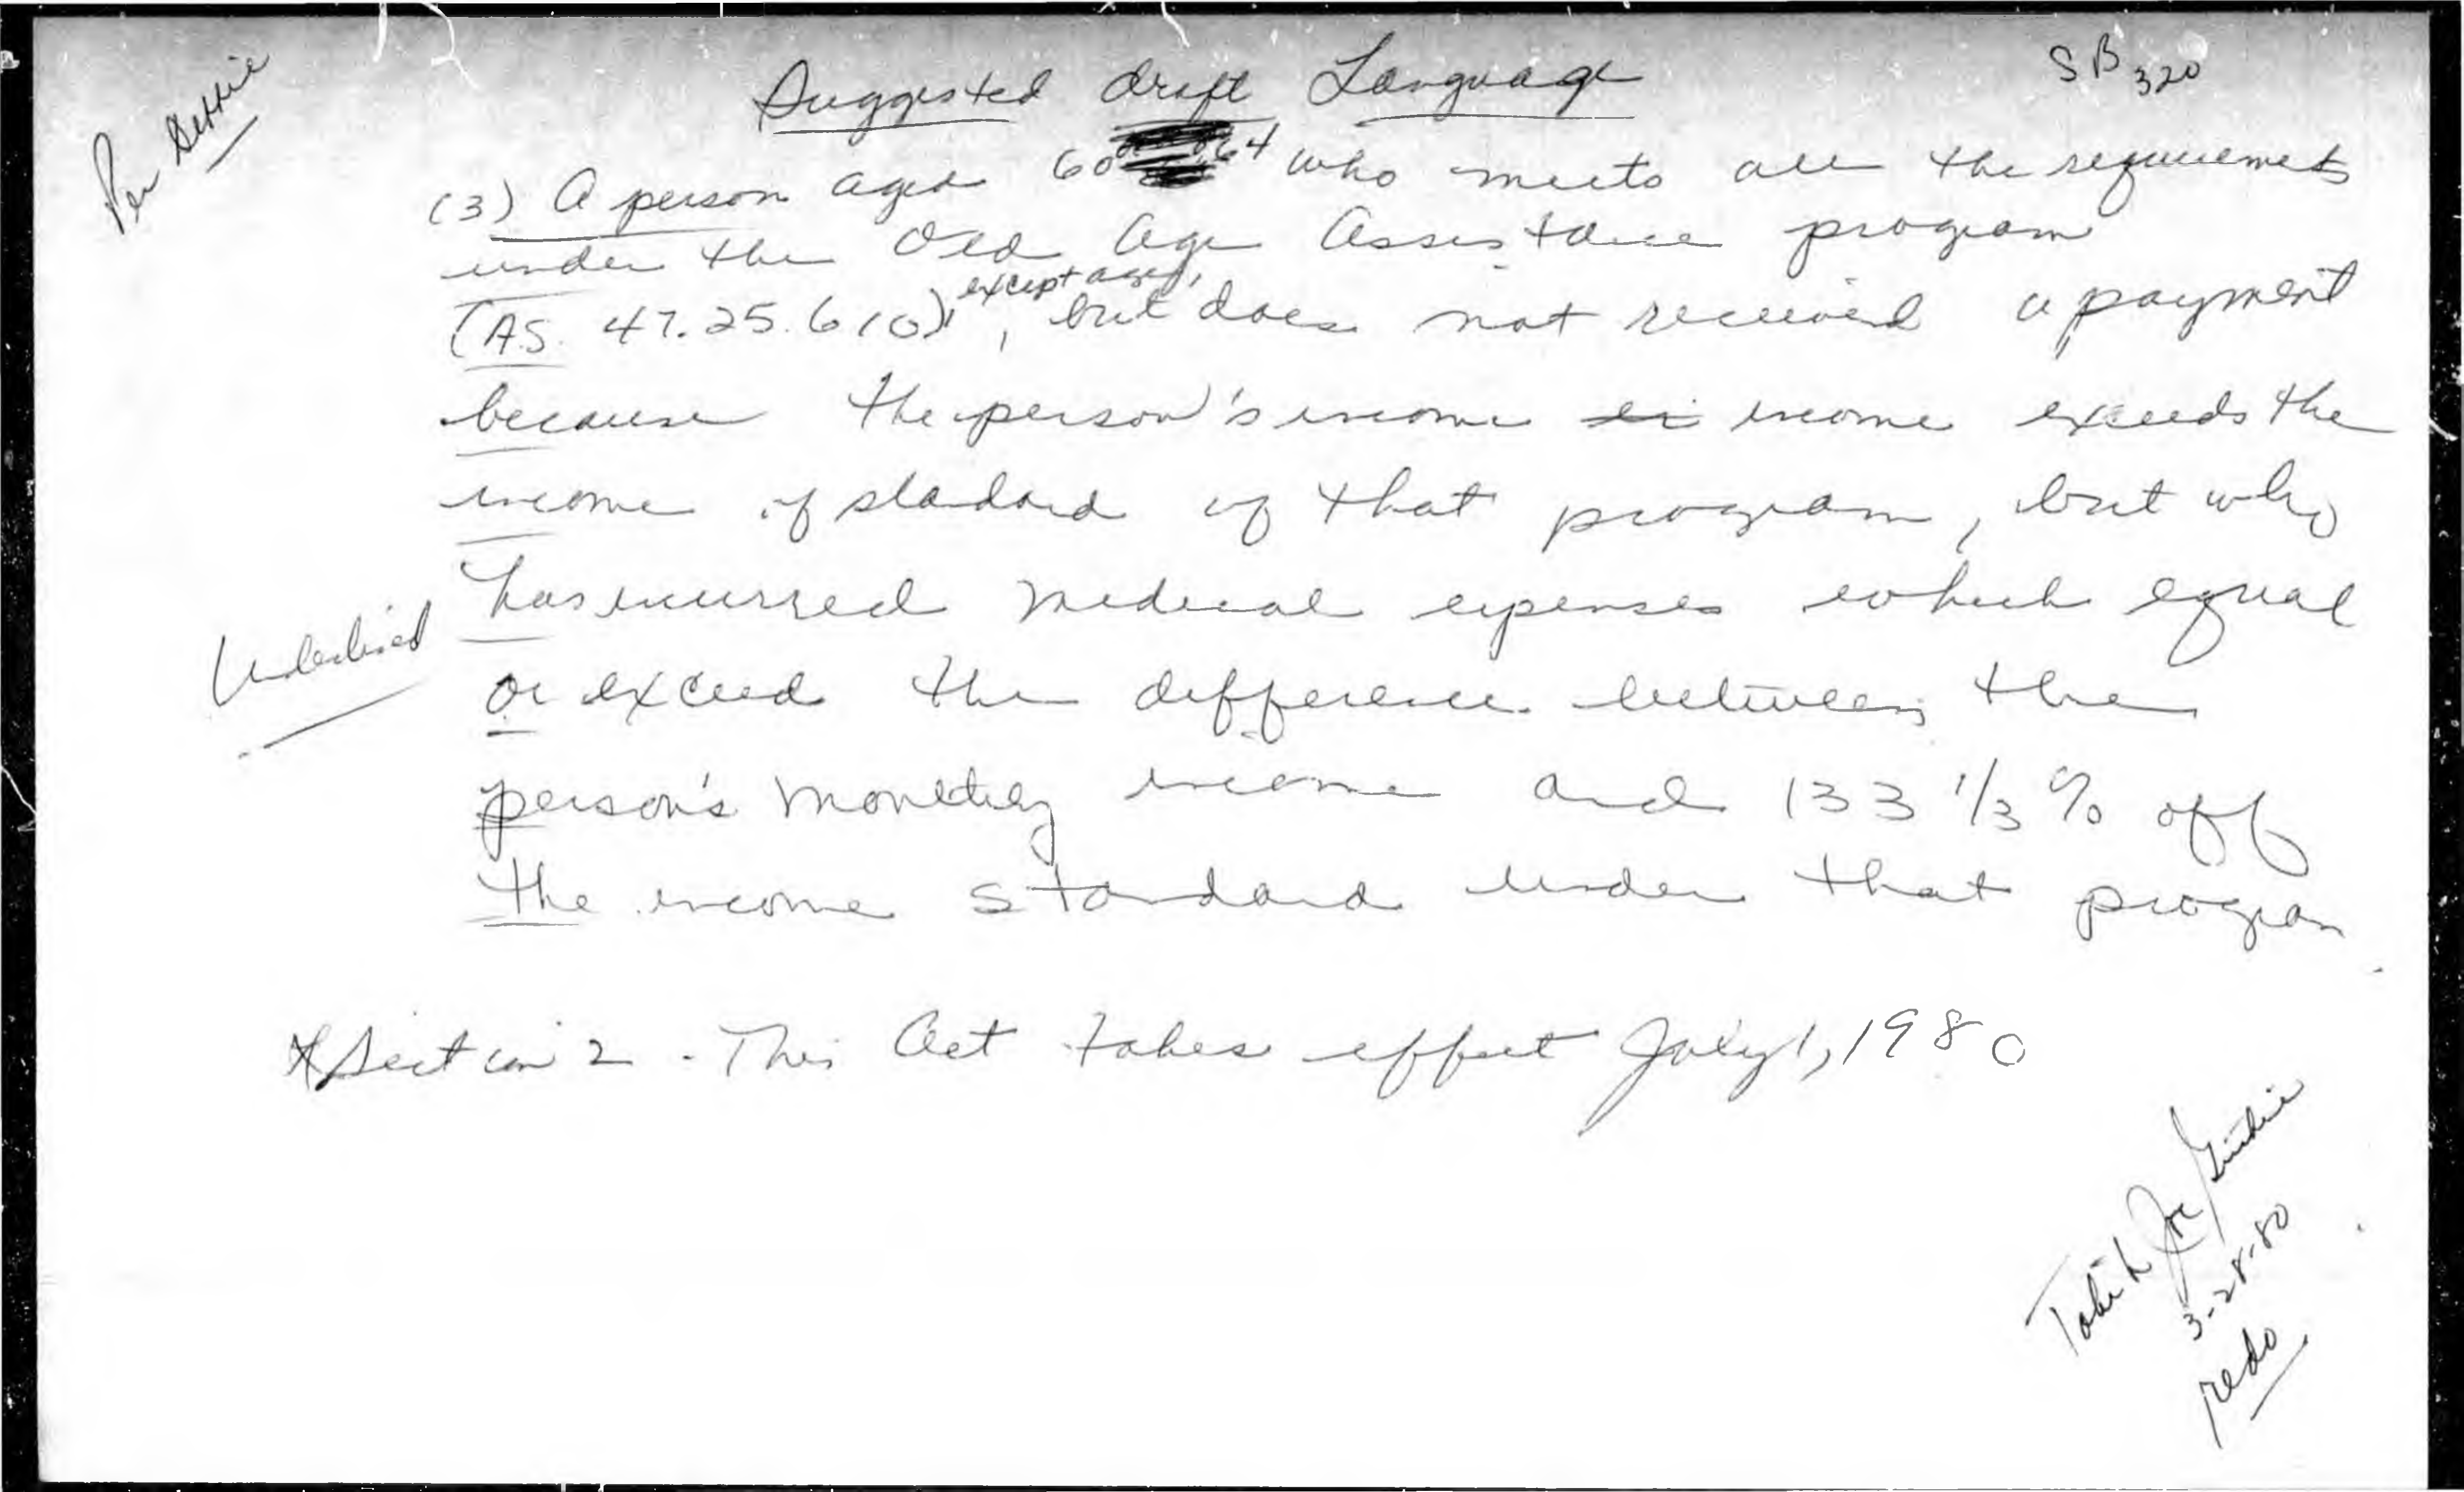 Suggested draft Language
SB 320
Per
(3) A person aged 60 64 who meets all the requirements
under the Old Age Assistance program
(AS. 47.25.610), except age, but does not received a payment
because the person's income income exceeds the
income of standard of that program, but who
has incurred medical expenses which equal
Underlined
or exceed the difference between the
person's monetary income and 133 1/3 % off
the income standard under that program.
* Section 2. This Act takes effect July 1, 1980
Joe
3-28-80
redo